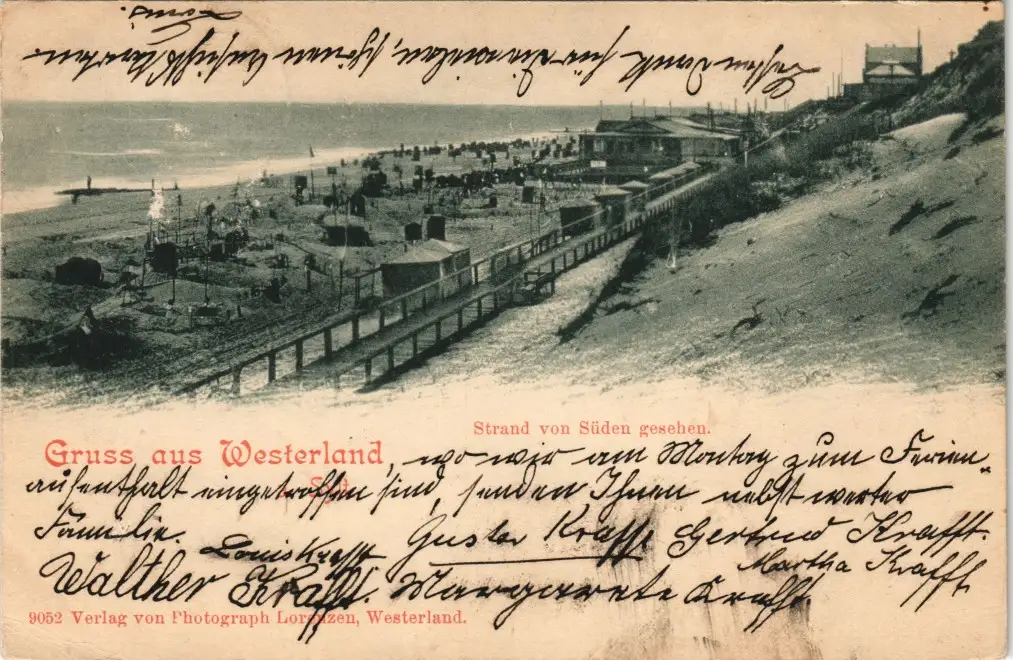 Besten Dank für die schönen Ansichtskarten
Louis.
Strand von Süden gesehen.
Gruss aus Westerland
Sylt
, wo wir am Montag zum Ferien„
aufenthalt eingetroffen sind, senden Ihnen nebst werter
Familie.
Louis Krafft Gustav Krafft, Gertrud Krafft.
Martha Krafft
Walther Krafft. Margarete Krafft
9052 Verlag von Photograph Lorenzen, Westerland.